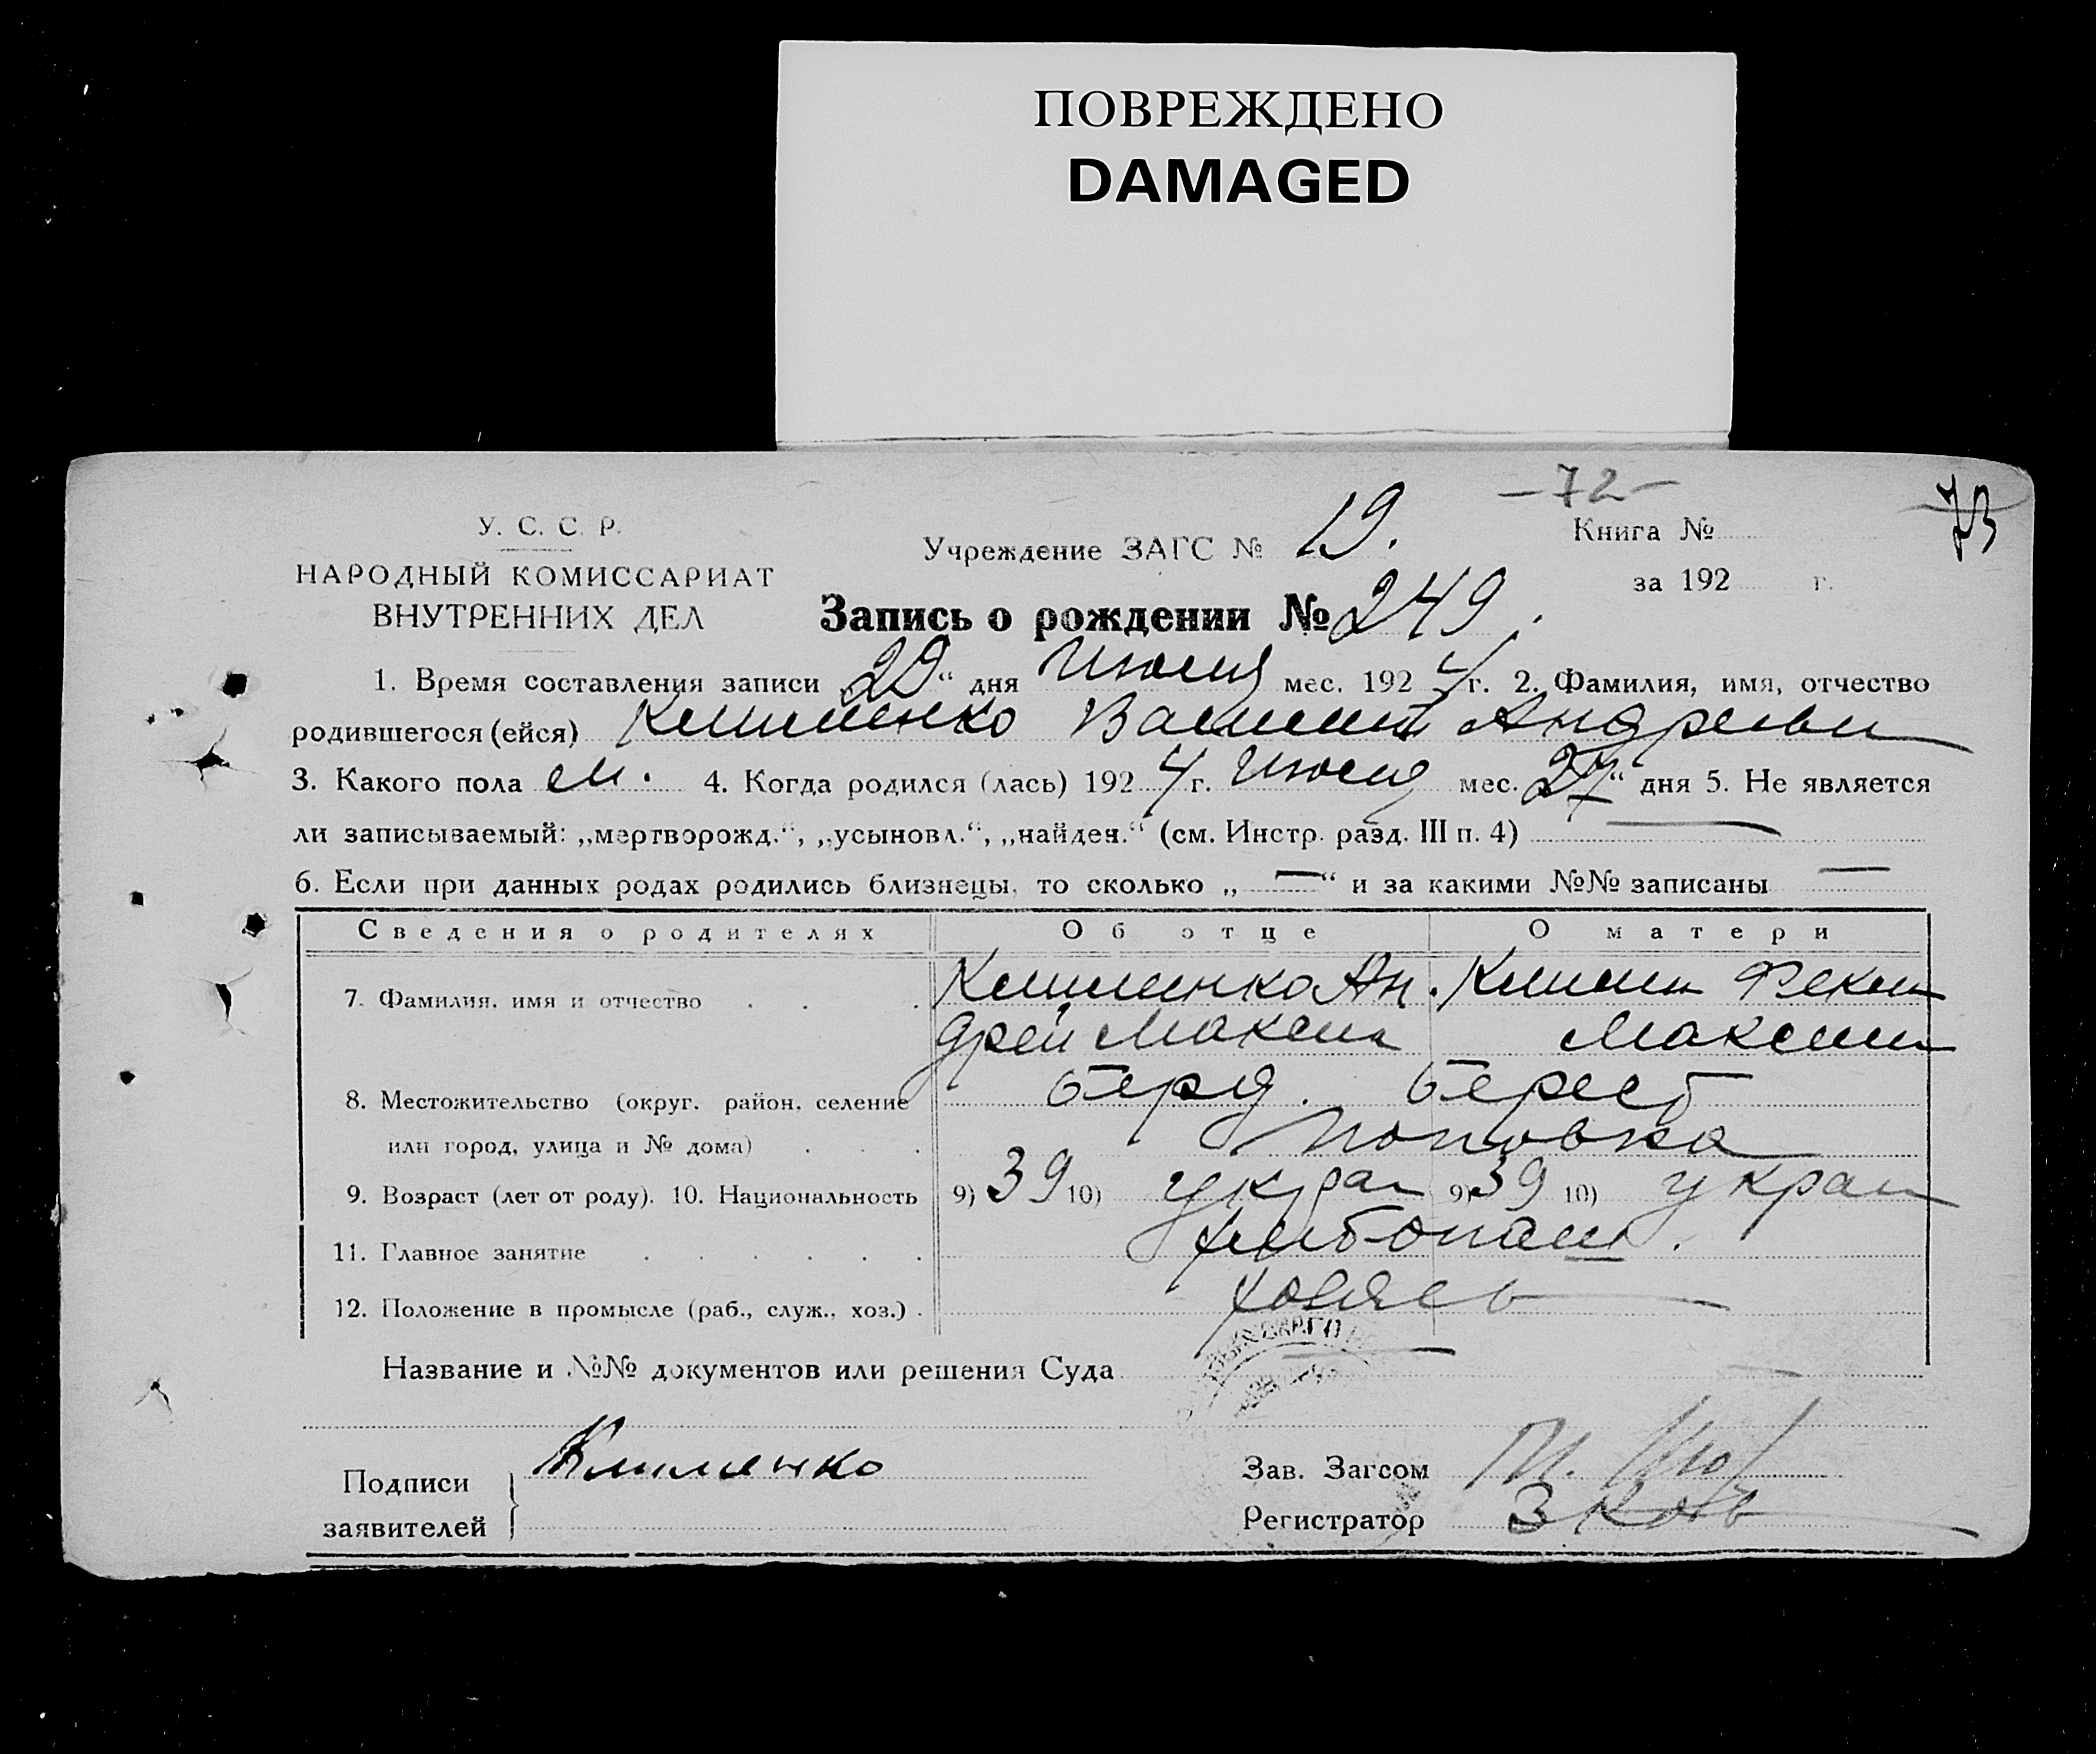 ПОВРЕЖДЕНО
DAMAGED
-72-
73
У. С. С. Р.
НАРОДНЫЙ КОМИССАРИАТ
ВНУТРЕННИХ ДЕЛ
Учреждение ЗАГС № 19.
Книга №
за 192 г.
Запись о рождении № 249.
1. Время составления записи „29“ дня Июля мес. 1924 г. 2. Фамилия, имя, отчество
родившегося (ейся) Клименко Василий Андрееви
3. Какого пола м. 4. Когда родился (лась) 1924 г. Июля мес. „27“ дня 5. Не является
ли записываемый: „мертворожд.“, „усыновл.“, „найден.“ (см. Инстр. разд. III п. 4) —
6. Если при данных родах родились близнецы, то сколько „—“ и за какими №№ записаны —
Сведения о родителях Об отце О матери
7. Фамилия, имя и отчество Клименко Ан. Климен Фекл
дрей Максим Максим
8. Местожительство (округ. район. селение Берд. Берест
или город, улица и № дома) Поповка
9. Возраст (лет от роду). 10. Национальность 9) 39 10) украи 9) 39 10) украи
11. Главное занятие хлебопаш.
12. Положение в промысле (раб., служ., хоз.) хозяев
Название и №№ документов или решения Суда —
Подписи
заявителей
Клименко
Зав. Загсом
Регистратор